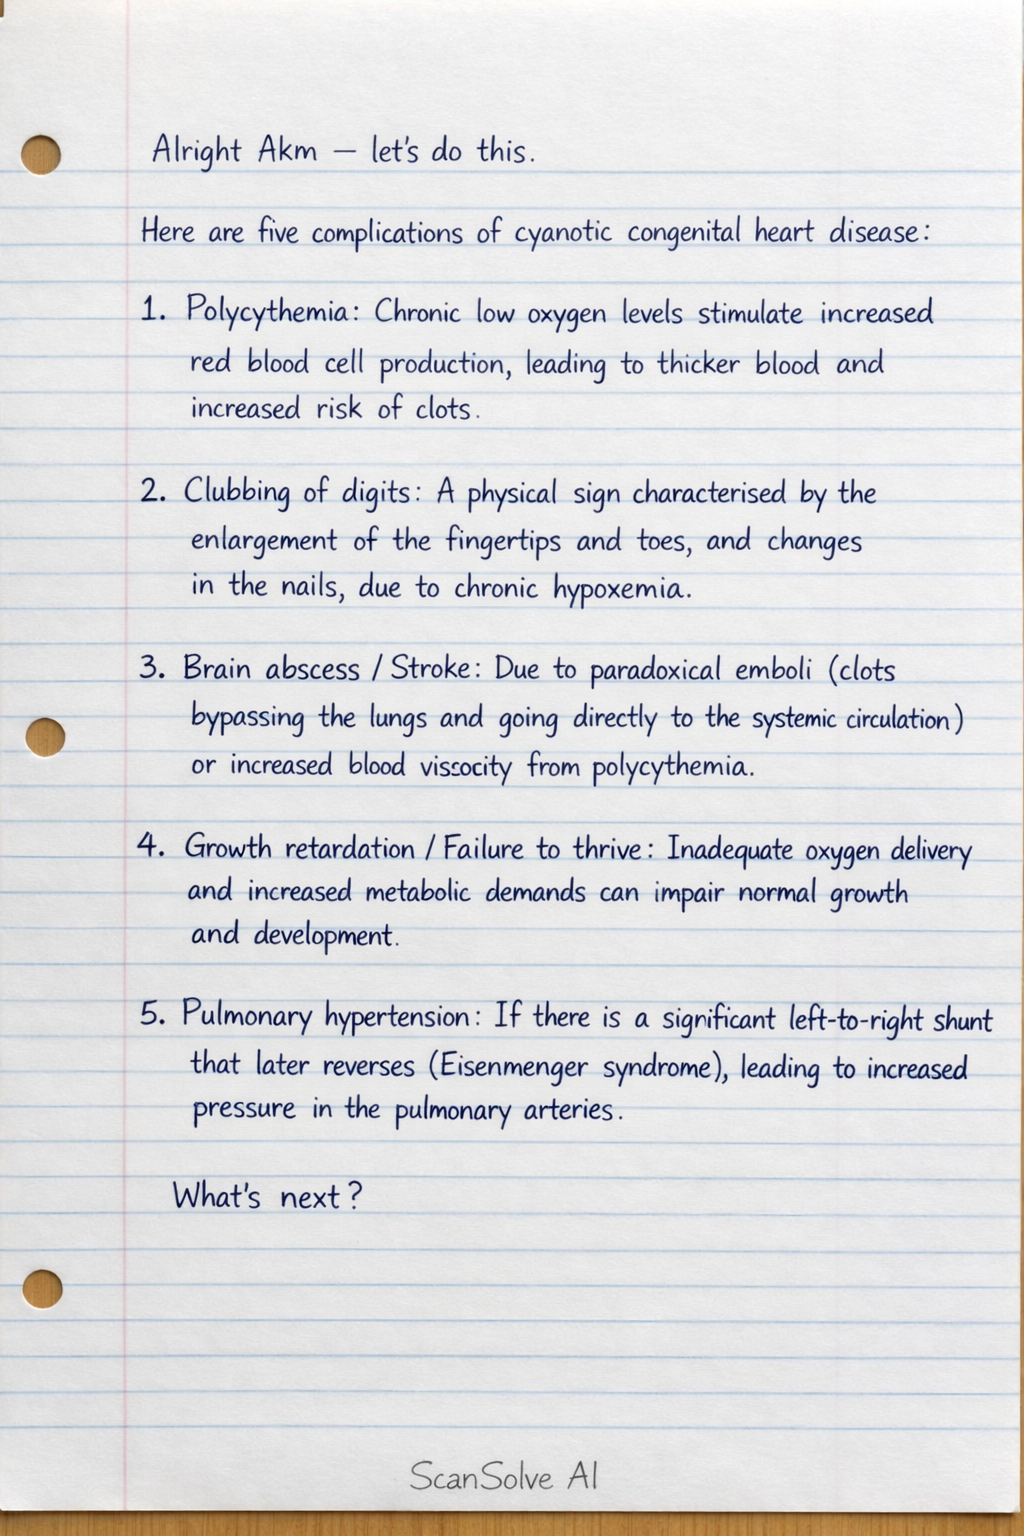 Alright Akm — let's do this.
Here are five complications of cyanotic congenital heart disease:
1. Polycythemia: Chronic low oxygen levels stimulate increased
red blood cell production, leading to thicker blood and
increased risk of clots.
2. Clubbing of digits: A physical sign characterised by the
enlargement of the fingertips and toes, and changes
in the nails, due to chronic hypoxemia.
3. Brain abscess / Stroke: Due to paradoxical emboli (clots
bypassing the lungs and going directly to the systemic circulation)
or increased blood viscocity from polycythemia.
4. Growth retardation / Failure to thrive: Inadequate oxygen delivery
and increased metabolic demands can impair normal growth
and development.
5. Pulmonary hypertension: If there is a significant left-to-right shunt
that later reverses (Eisenmenger syndrome), leading to increased
pressure in the pulmonary arteries.
What's next?
ScanSolve AI